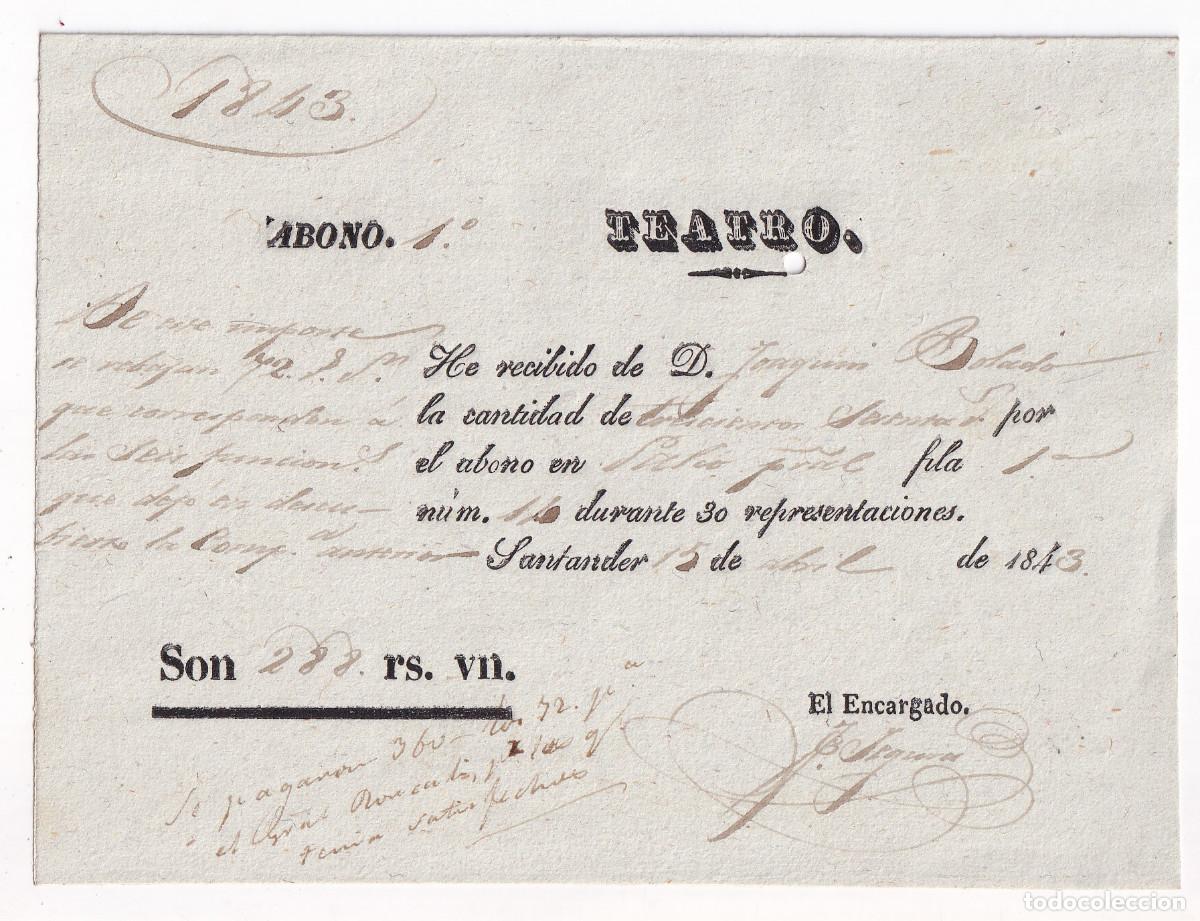 1843.
ABONO. 1.º TEATRO.
De ese importe
se rebajan 72.
que corresponden á
las seis funcion.s
que dejo en descu-
bierto la Comp.a anterior
He recibido de D. Joaquin Bolado
la cantidad de trescientos sesenta r.s por
el abono en Palco pral fila 1.a
núm. durante 30 representaciones.
Santander 15 de abril de 1843.
Son 288. rs. vn.
El Encargado.
Segura
Se pagaron 360 los 72. p.a
el Gral Roncali,
tenia satisfechos
todocoleccion